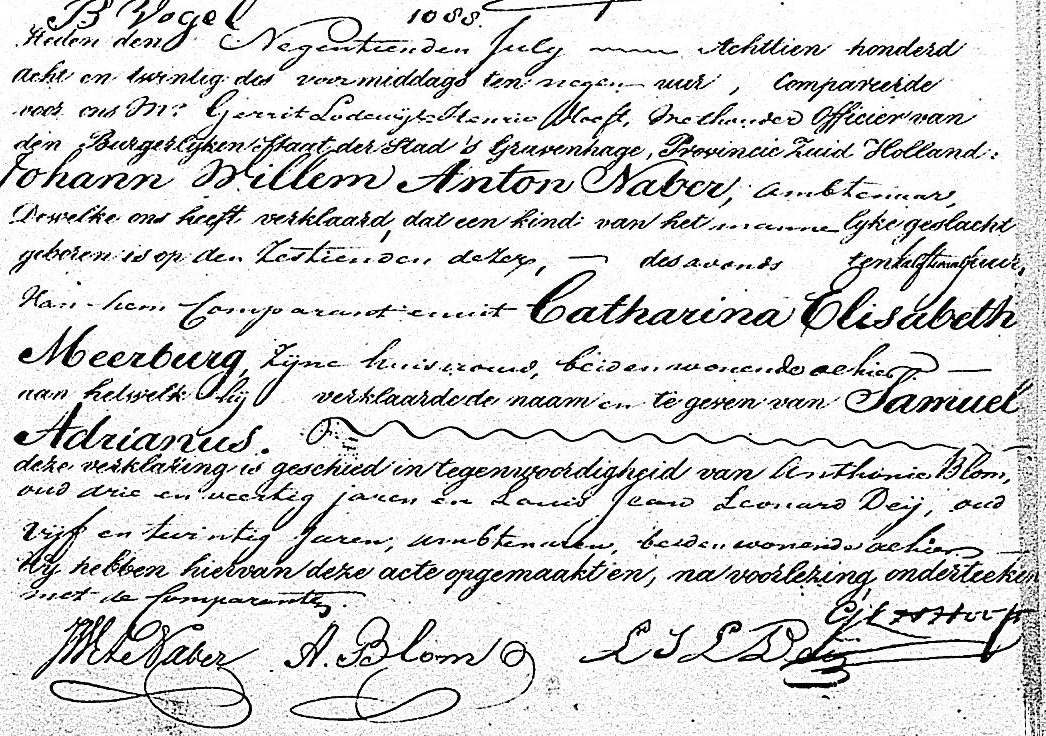 B Vogel 1088.
Heden den Negentienden July Achttien honderd
acht en twintig des voormiddags ten negen uur, Compareerde
voor ons Mr. Gerrit Lodewijk Henric Hooft, Wethouder Officier van
den Burgerlyken Staat der Stad 's Gravenhage, Provincie Zuid Holland:
Johann Willem Anton Naber, ambtenaar,
Dewelke ons heeft verklaard, dat een kind van het mannelyke geslacht
geboren is op den Zestienden dezer, des avonds ten half uur,
Van hem Comparant en uit Catharina Elisabeth
Meerburg, Zyne huisvrouw, beiden wonende alhier.
aan hetwelk hij verklaarde de naam en te geven van Samuel
Adrianus.
deze verklaring is geschied in tegenwoordigheid van Anthonie Blom,
oud drie en veertig jaren en Louis Jean Leonard Deij, oud
Vijf en twintig Jaren, ambtenaren, beiden wonende alhier
Wy hebben hiervan deze acte opgemaakt en, na voorlezing onderteeken
met de Comparanten.
Naber A. Blom L J L Deij